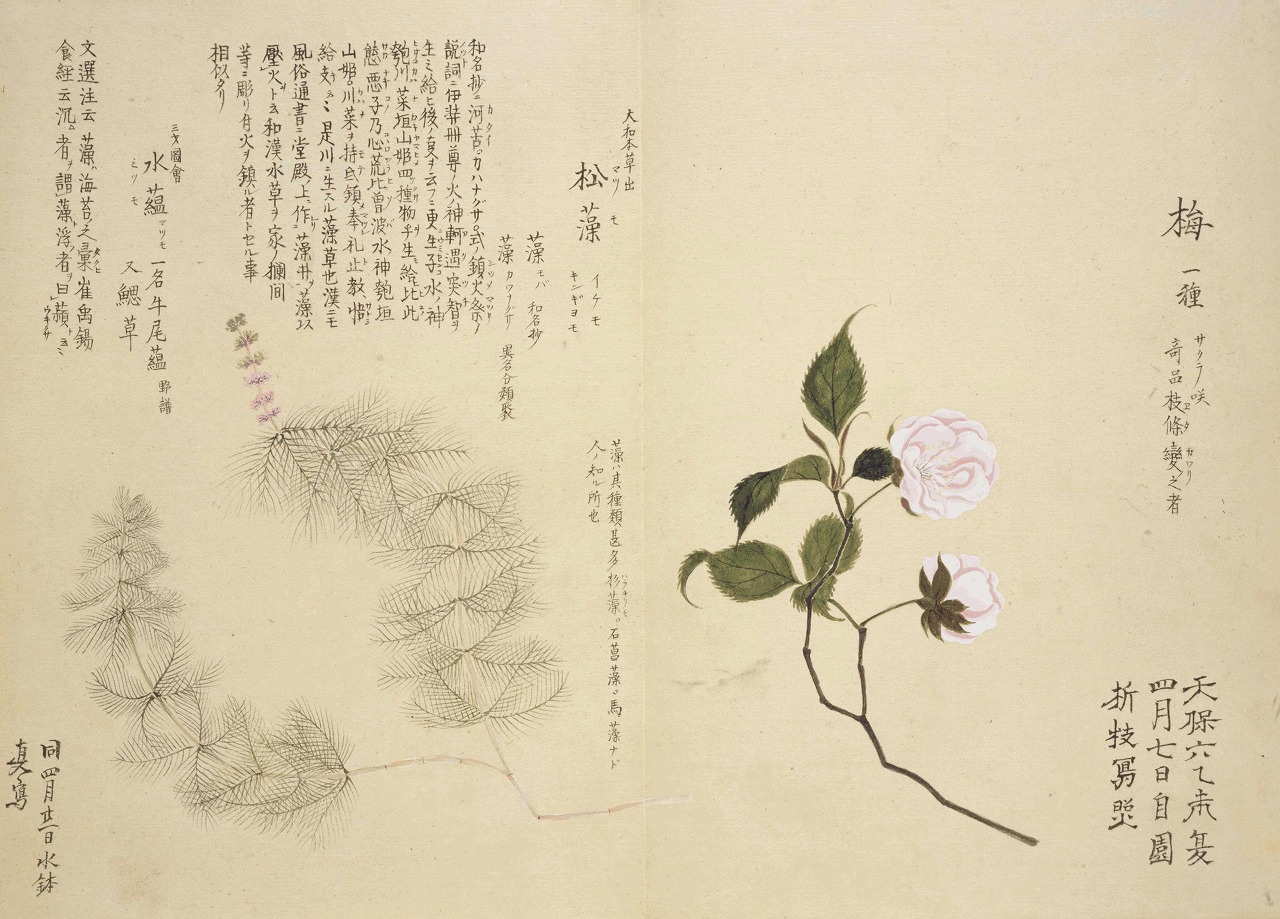 梅 一種
サクラ咲
奇品枝條變之者
エタ カワリ
天保六乙未夏
四月七日自園
折枝寫照
大和本草出
松藻
マツモ
イケモ
キンギヨモ
藻 モバ 和名抄
藻 カワナグサ 異名分類聚
藻ハ其種類甚多 杉藻 石菖藻 馬藻ナド
人ノ知ル所也
和名抄ニ河苔カハナグサ 式ノ鎮火祭ノ
説詞ニ伊弉冊尊ノ火ノ神軻遇突智ヲ
生ミ給ヒ後ノ更ヲ云フニ更生子水ノ神
匏川菜垣山姫四種物乎生給比此
態悪子乃心荒比曽波水神匏垣
山姫川菜ヲ持氐鎮奉礼止教悟
給支云ミ是川ニ生スル藻草也漢ニモ
風俗通書ニ堂殿ノ上ニ作藻井ヲ藻以
壓火ヲト云和漢水草ヲ家ノ欄間
等ニ彫リ付火ヲ鎮ル者トセル事
相似タリ
三才圖會
水薀 一名牛尾薀 野譜
ミツモ マツモ
又鰓草
文選注云 藻ハ海苔之彙 崔禹錫
食經云沉ム者ヲ謂藻ト浮ク者ヲ曰蘋ト云ミ
ウキクサ
同四月廿一日水鉢
真寫